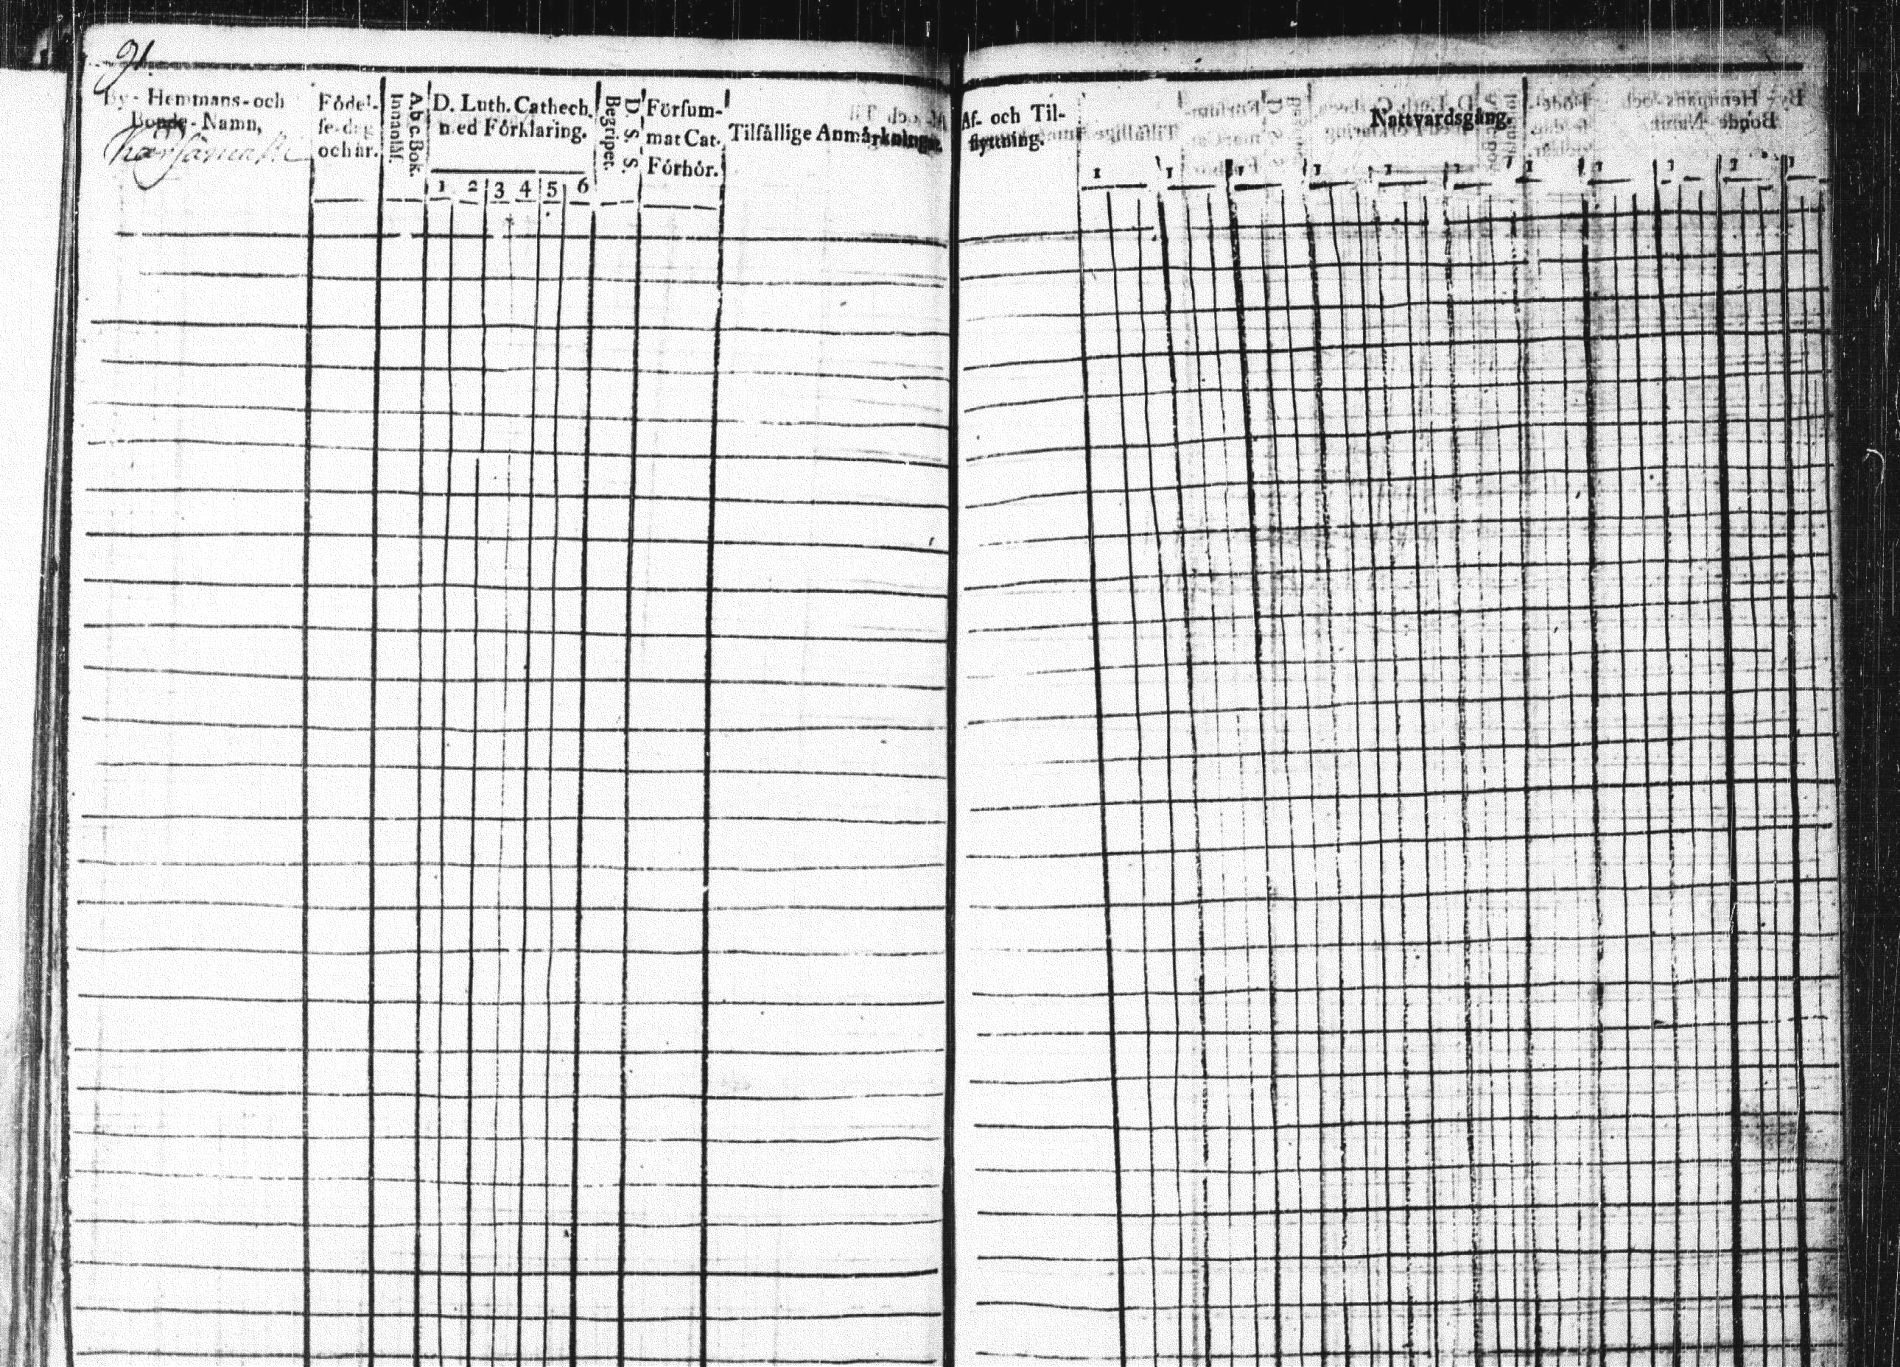 91.
By- Hemmans- och
Bonde- Namn,
Födel-
se-dag
och år.
A b c Bok.
Innanläs.
D. Luth. Cathech.
med Förklaring.
1 2 3 4 5 6
D. S. S.
Begripet.
Försum-
mat Cat.
Förhör.
Tilfällige Anmärkningar.
Af- och Til-
flyttning.
Nattvardsgång.
1 1 1 1 1 1 1 1 1 1 1